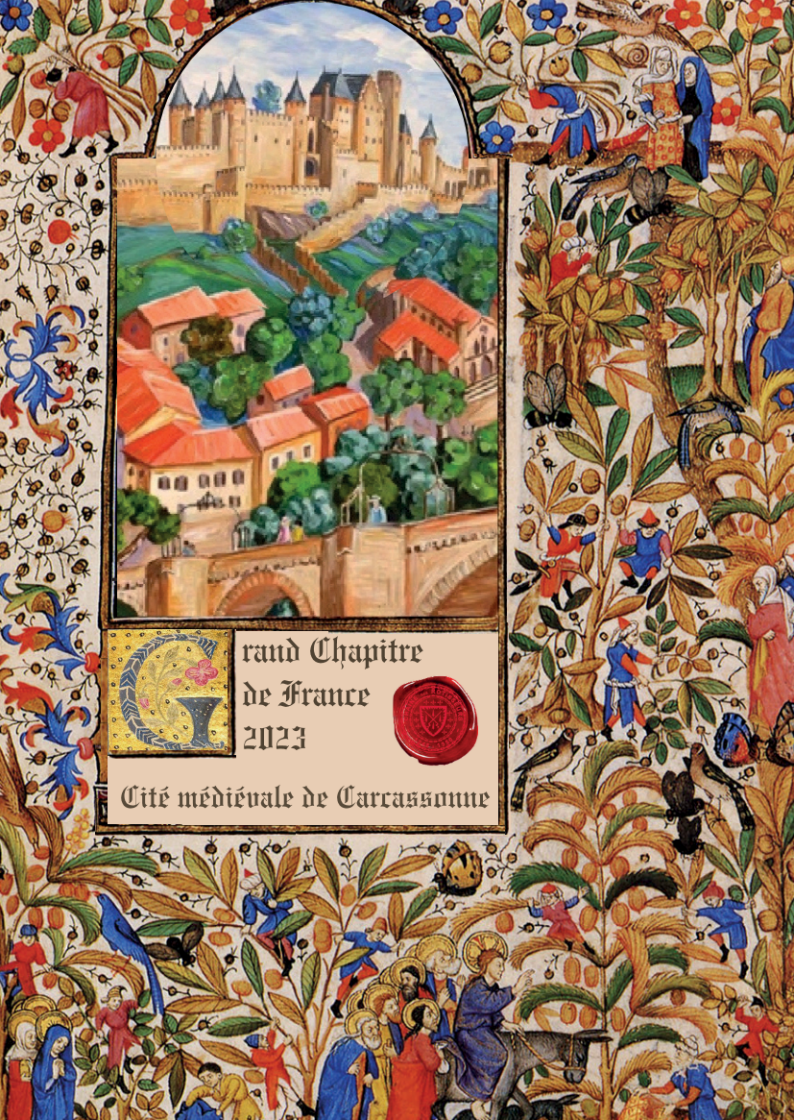 Grand Chapitre
de France
2023
Cité médiévale de Carcassonne